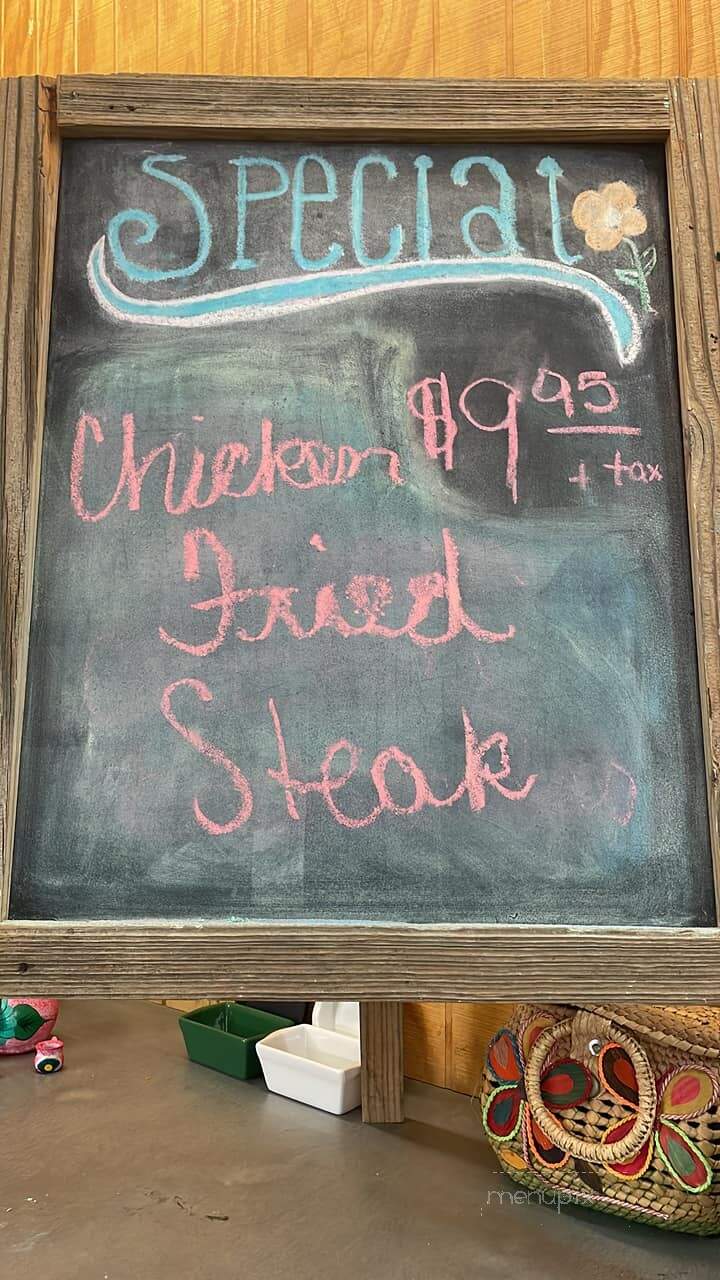 Special
Chicken $9 95
+ tax
Fried
Steak
menupix